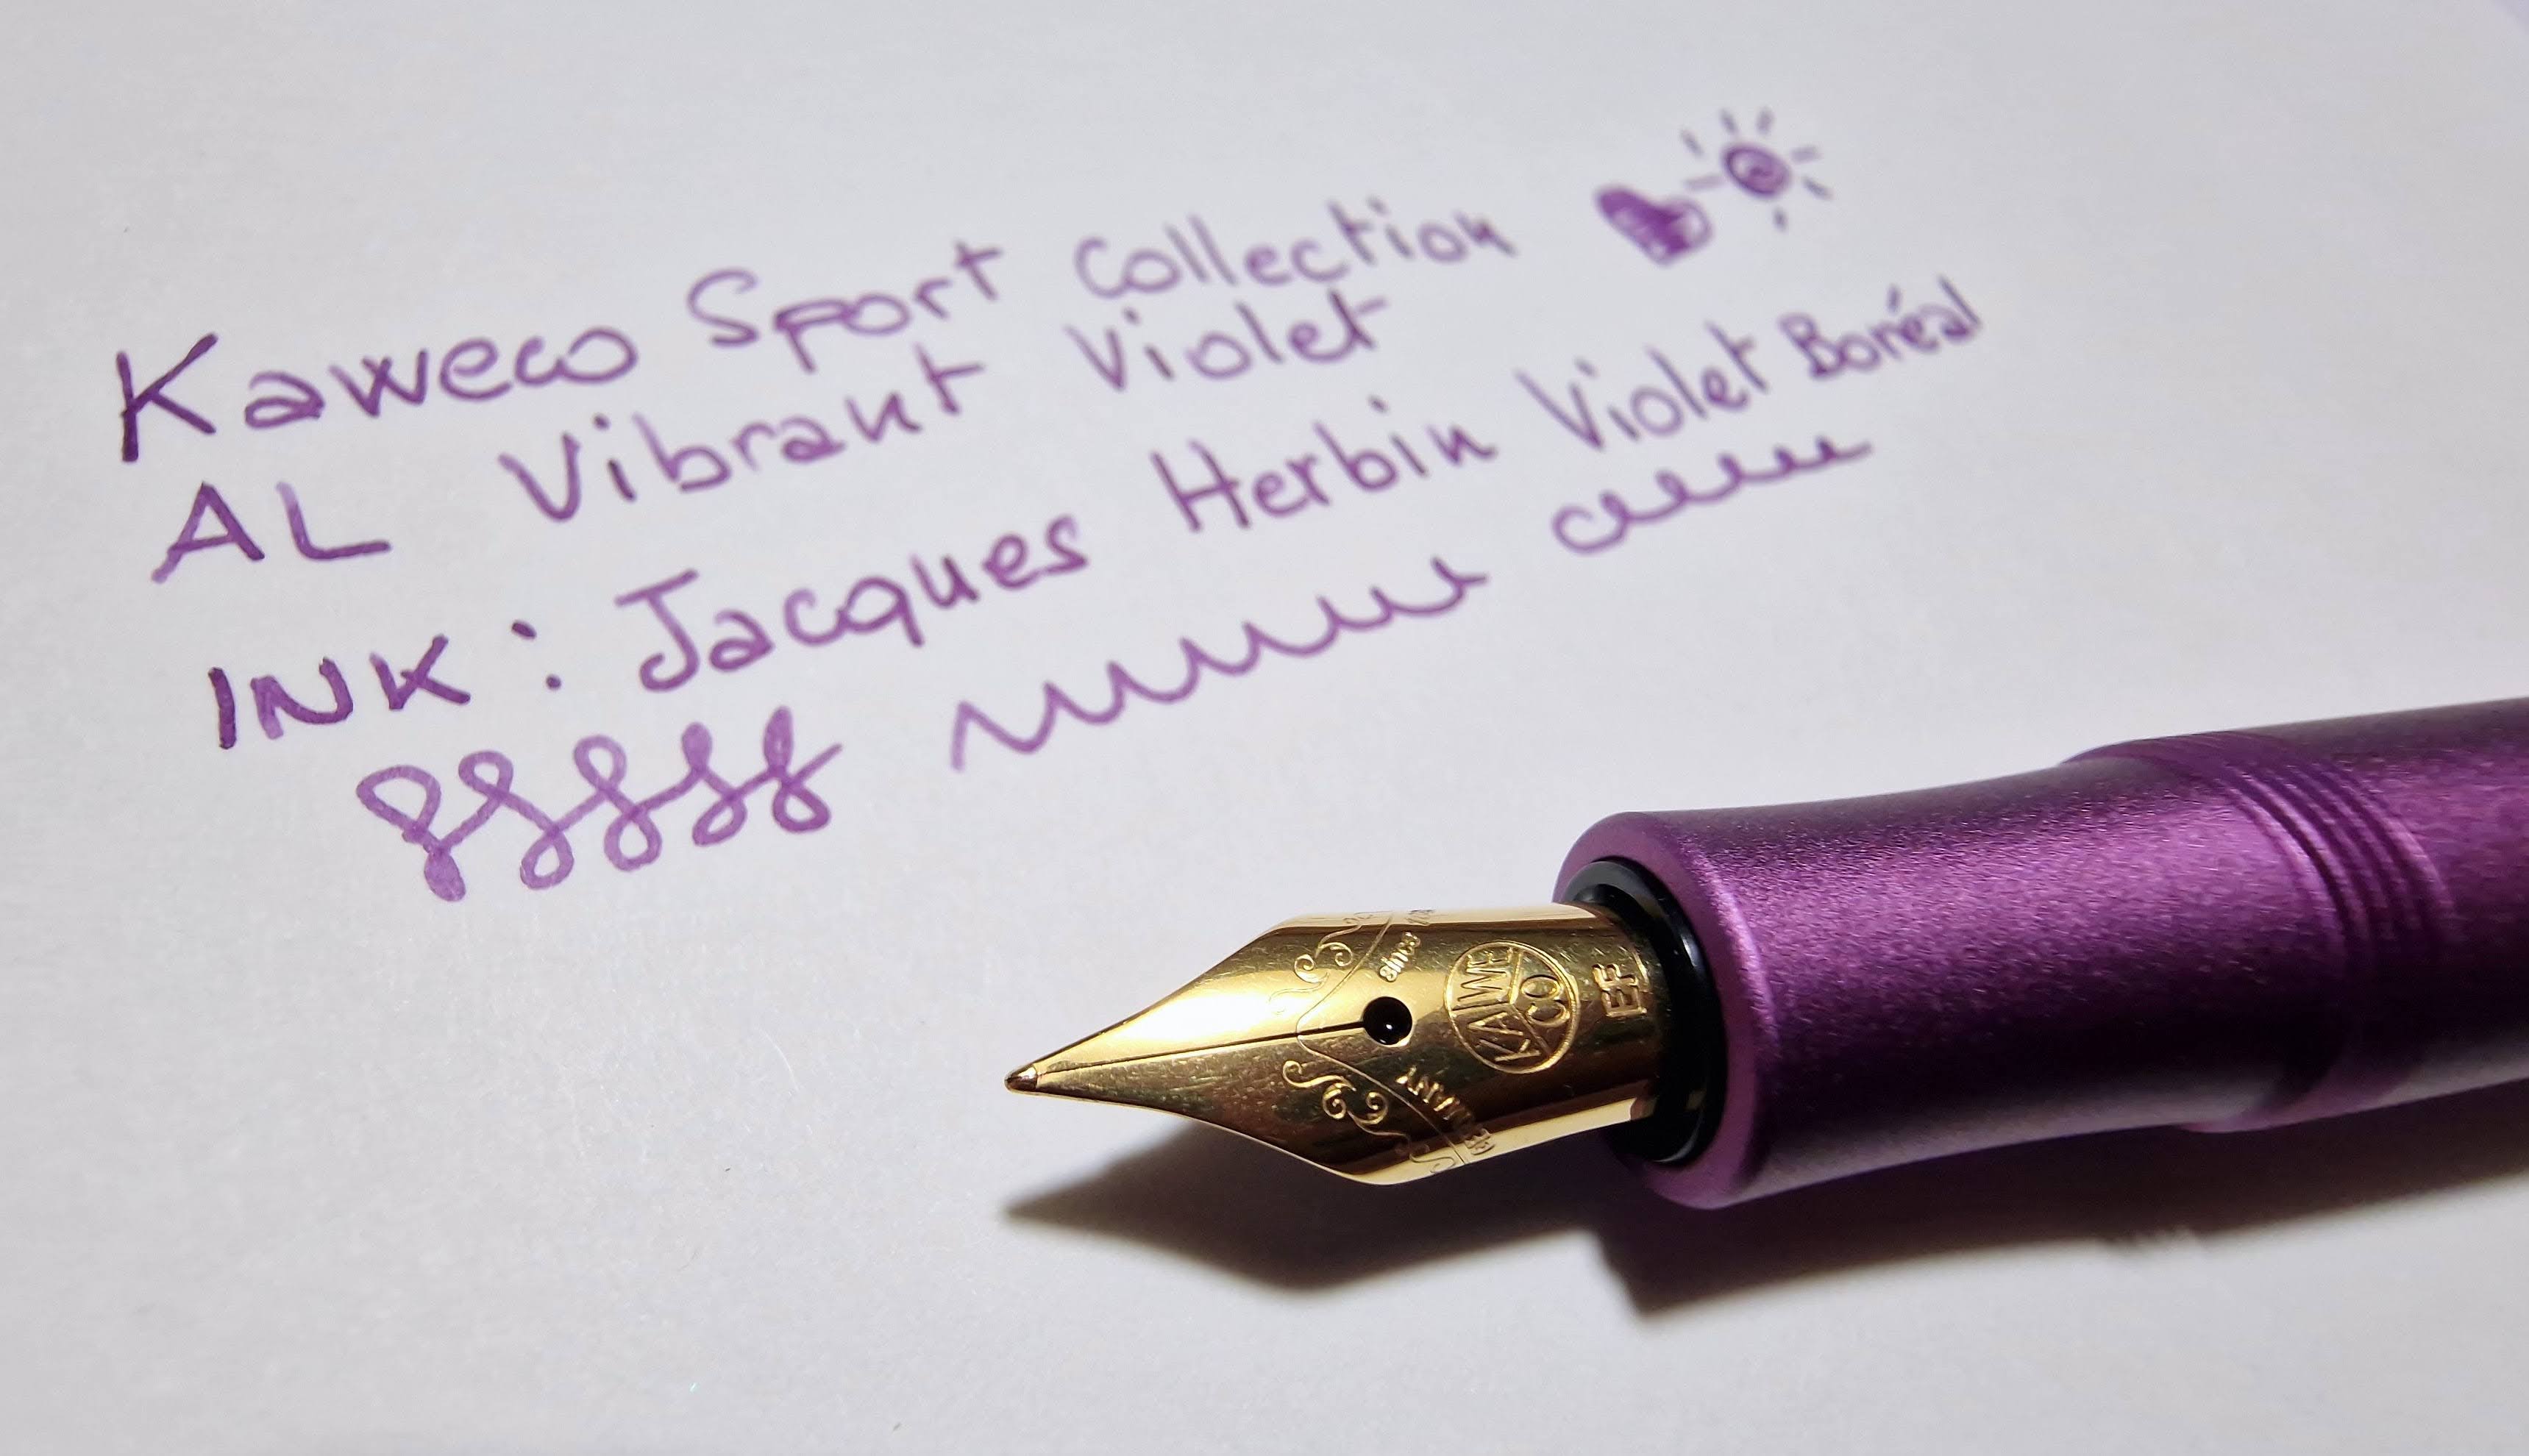 Kaweco Sport Collection
AL Vibrant Violet
INK: Jacques Herbin Violet Boréal
since
KAWE
CO
EF
GERMANY